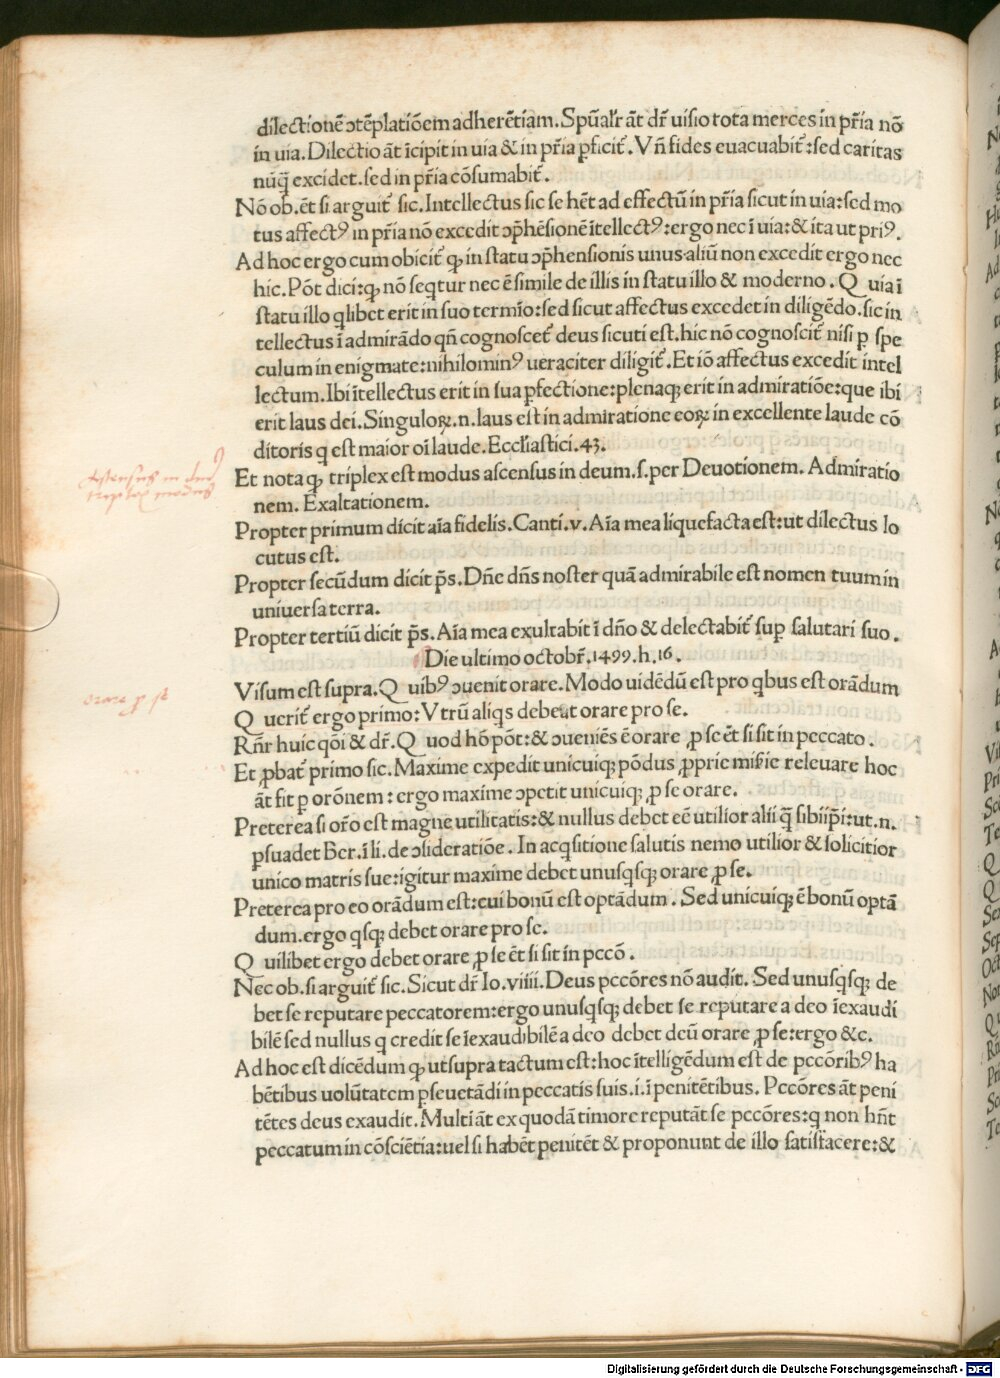 dilectionē ɔtēplatiōem adherētiam. Spūalr̄ āt dr̄ uisio tota merces in pr̄ia nō
in uia. Dilectio āt īcipit in uia & in pr̄ia ꝑficit̄. Vn̄ fides euacuabit̄: sed caritas
nūq̄ excidet. sed in pr̄ia cōsumabit̄.
Nō ob. ēt si arguit̄ sic. Intellectus sic se hēt ad effectū in pr̄ia sicut in uia: sed mo
tus affectꝰ in pr̄ia nō excedit ɔp̄hēsionē ītellectꝰ: ergo nec ī uia: & ita ut priꝰ.
Ad hoc ergo cum obicit̄ ꝙ in statu ɔp̄hensionis unus aliū non excedit ergo nec
hic. Pōt dici: ꝙ nō seqtur nec ē simile de illis in statu illo & moderno. Q uia ī
statu illo qlibet erit in suo termīo: sed sicut affectus excedet in diligēdo. sic in
tellectus ī admirādo qn̄ cognoscet̄ deus sicuti est. hic nō cognoscit̄ nisi ꝑ spe
culum in enigmate: nihilominꝰ ueraciter diligit̄. Et iō affectus excedit intel
lectum. Ibi ītellectus erit in sua ꝑfectione: plenaqꝫ erit in admiratiōe: que ibi
erit laus dei. Singuloꝝ. n. laus est in admiratione eoꝝ in excellente laude cō
ditoris q est maior oī laude. Eccl̄iastici. 43.
Et nota ꝙ triplex est modus ascensus in deum. s. per Deuotionem. Admiratio
nem. Exaltationem.
Propter primum dicit aīa fidelis. Canti. v. Aīa mea liquefacta est: ut dilectus lo
cutus est.
Propter secūdum dicit p̄s. Dn̄e dn̄s noster quā admirabile est nomen tuum in
uniuersa terra.
Propter tertiū dicit p̄s. Aīa mea exultabit ī dn̄o & delectabit̄ sup̄ salutari suo.
Die ultimo octobr̄. 1499. h. 16.
Visum est supra. Q uibꝰ ɔuenit orare. Modo uidēdū est pro qbus est orādum
Q uerit̄ ergo primo: Vtrū aliqs debeat orare pro se.
Rn̄r huic qōi & dr̄. Q uod hō pōt: & ɔueniēs ē orare ꝓ se ēt si sit in peccato.
Et ꝓbat̄ primo sic. Maxime expedit unicuiqꝫ pōdus ꝓprie misīe releuare hoc
āt fit ꝑ orōnem: ergo maxime ɔpetit unicuiqꝫ ꝓ se orare.
Preterea si or̄o est magne utilitatis: & nullus debet eē utilior alii q̄ sibiip̄i: ut. n.
ꝑsuadet Ber. ī li. de ɔsideratiōe. In acqsitione salutis nemo utilior & solicitior
unico matris sue: igitur maxime debet unusqsqꝫ orare ꝓ se.
Preterea pro eo orādum est: cui bonū est optādum. Sed unicuiqꝫ ē bonū optā
dum. ergo qsqꝫ debet orare pro se.
Q uilibet ergo debet orare ꝓ se ēt si sit in pccō.
Nec ob. si arguit̄ sic. Sicut dr̄ Io. viiii. Deus pccōres nō audit. Sed unusqsqꝫ de
bet se reputare peccatorem: ergo unusqsqꝫ debet se reputare a deo īexaudi
bilē sed nullus q credit se īexaudibilē a deo debet deū orare ꝓ se: ergo &c.
Ad hoc est dicēdum ꝙ ut supra tactum est: hoc ītelligēdum est de pccōribꝰ ha
bētibus uolūtatem ꝑseuetādi in peccatis suis. i. ī penitētibus. Pccōres āt peni
tētes deus exaudit. Multi āt ex quodā timore reputāt se pccōres: q non hn̄t
peccatum in cōsciētia: uel si habēt penitēt & proponunt de illo satisfacere: &
orare ꝓ se
Digitalisierung gefördert durch die Deutsche Forschungsgemeinschaft - DFG